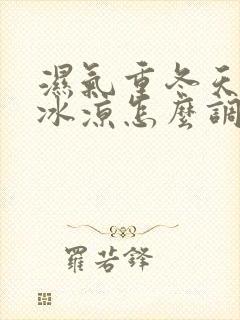 濕氣重冬天
冰涼怎麼調
羅若鋒